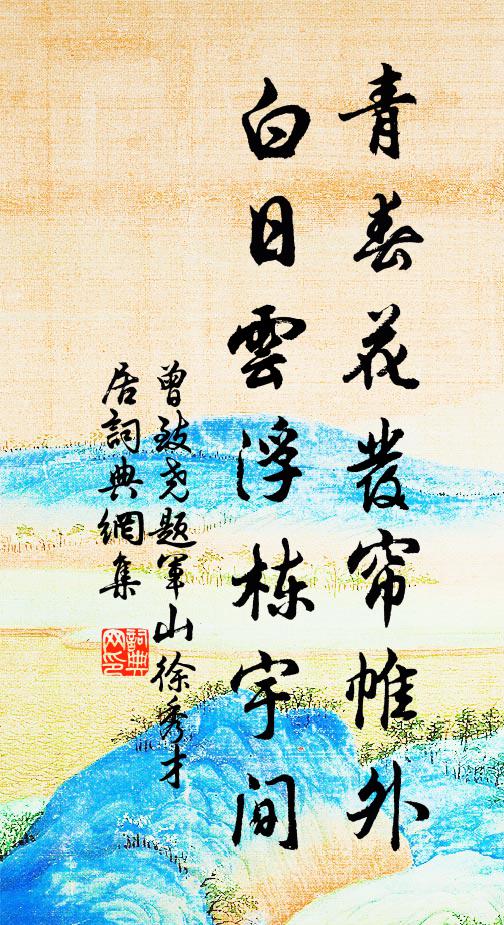 青春花發帘帷外
白日雲浮栋宇间
曾致尧题军山徐秀才
居詞典網集
詞典
网印